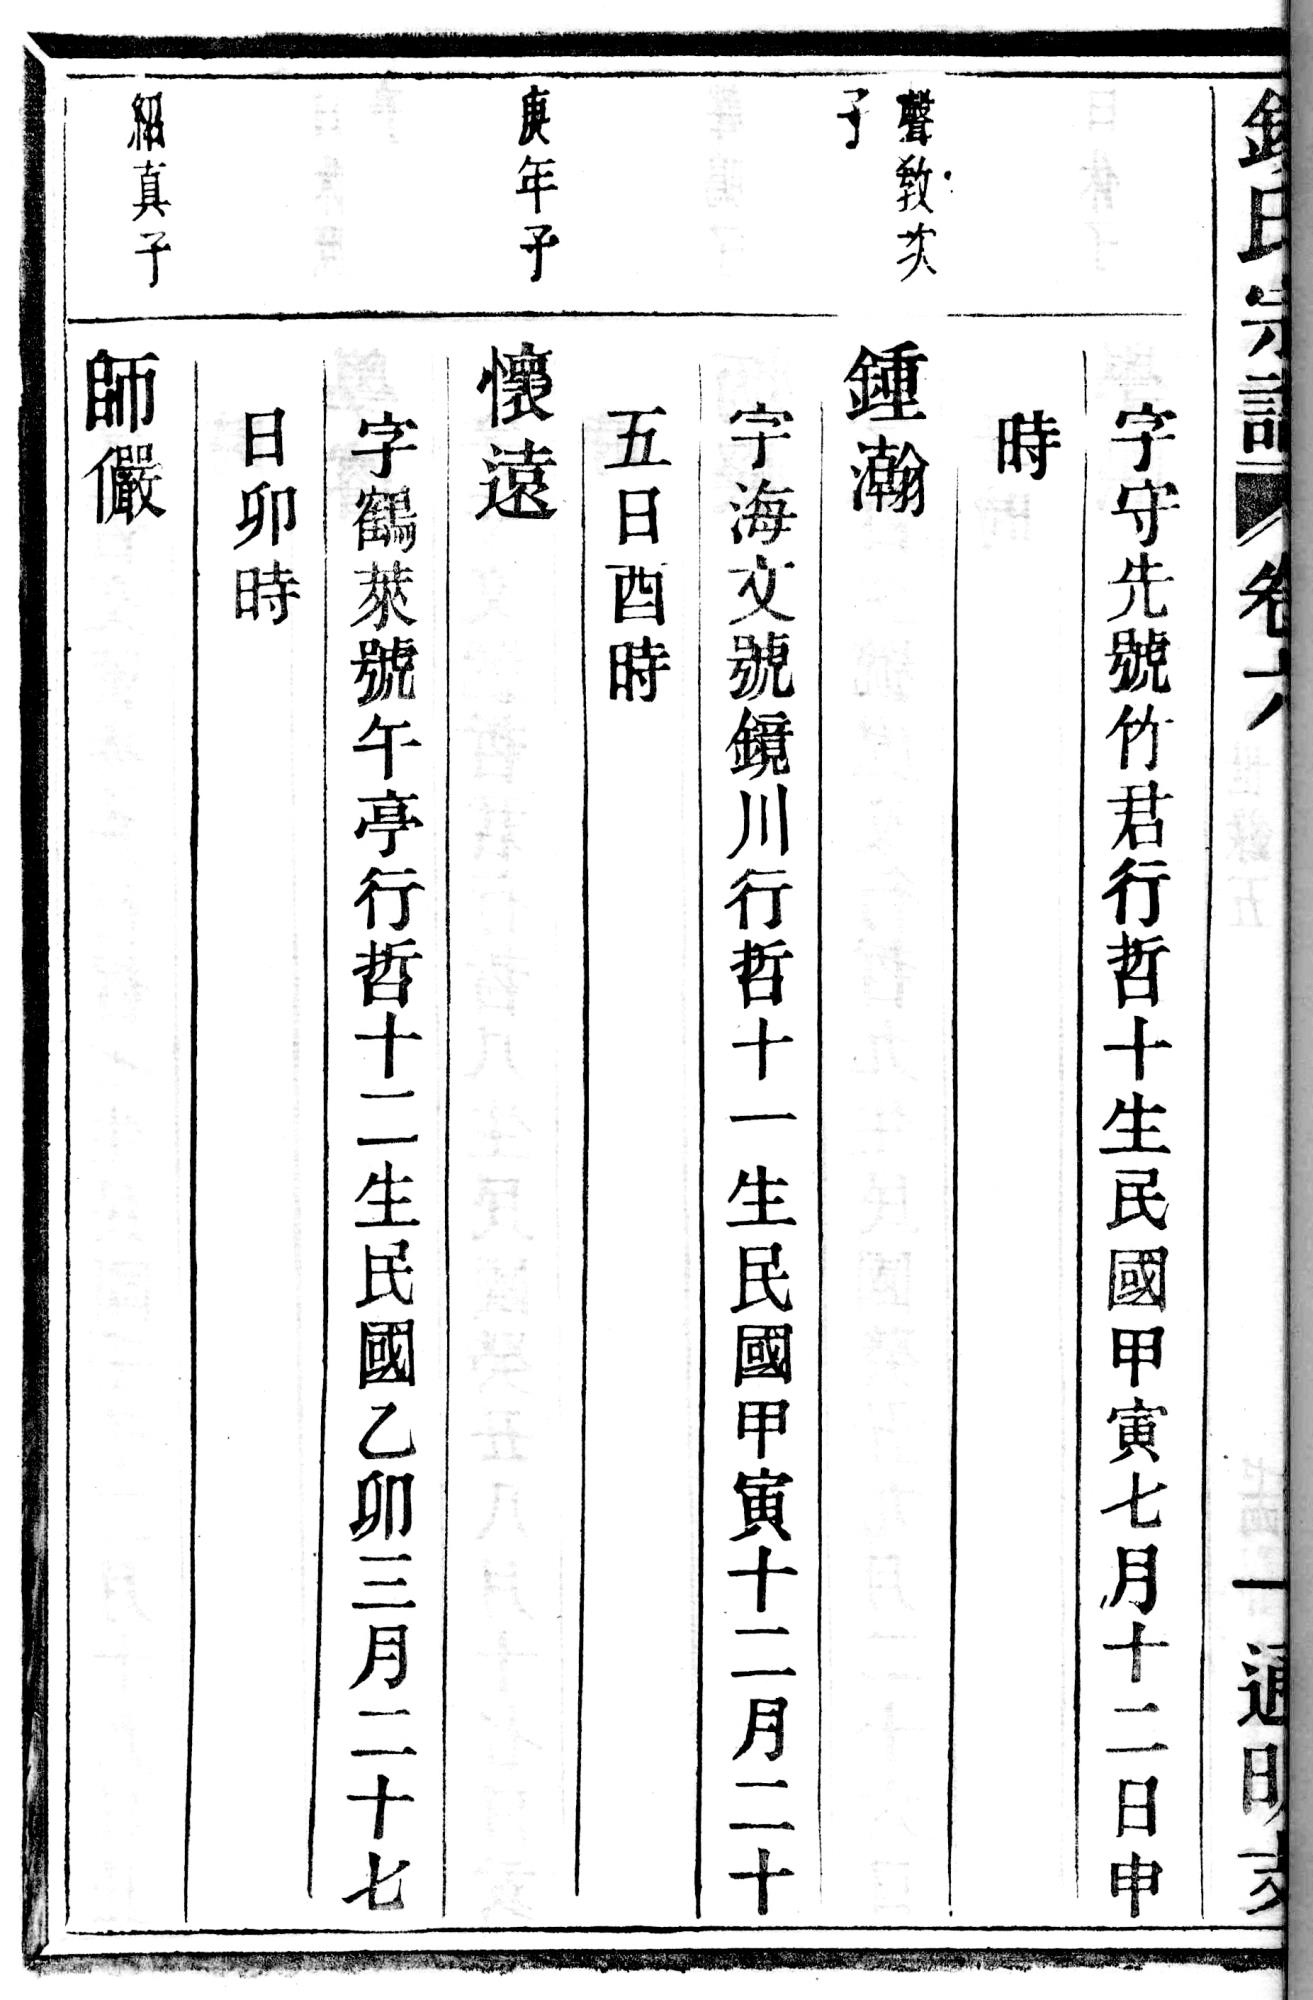 氏宗譜 卷六 一 通明支
字守先號竹君行哲十生民國甲寅七月十二日申
時
聲敎次
子
鍾瀚
字海文號鏡川行哲十一生民國甲寅十二月二十
五日酉時
庚年子
懷遠
字鶴萊號午亭行哲十二生民國乙卯三月二十七
日卯時
紹真子
師儼